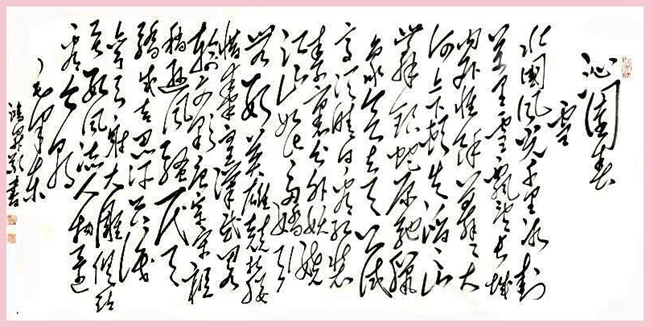 沁園春
雪
北國風光千里冰封
万里雪飘望长城
内外惟餘莽莽大
河上下顿失滔滔山
舞银蛇原驰蜡
象欲与天公试
高须晴日看红装
素裹分外妖娆
江山如此多娇引
無数英雄競折腰
惜秦皇漢武略
输文采唐宗宋祖
稍逊风騷一代天
骄成吉思汗只识
弯弓射大雕俱往
矣数风流人物还
看今朝
毛泽东